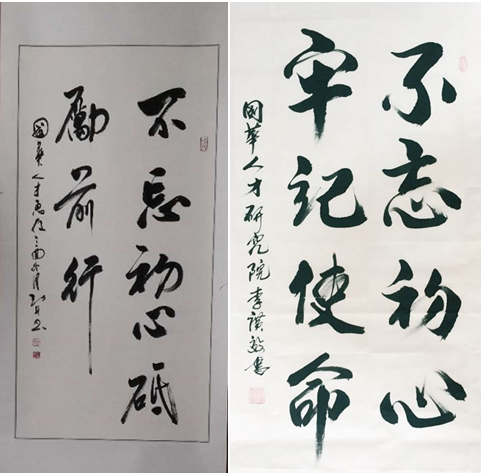 不忘初心砥
勵前行
國華人才
不忘初心
牢记使命
國華人才研究院